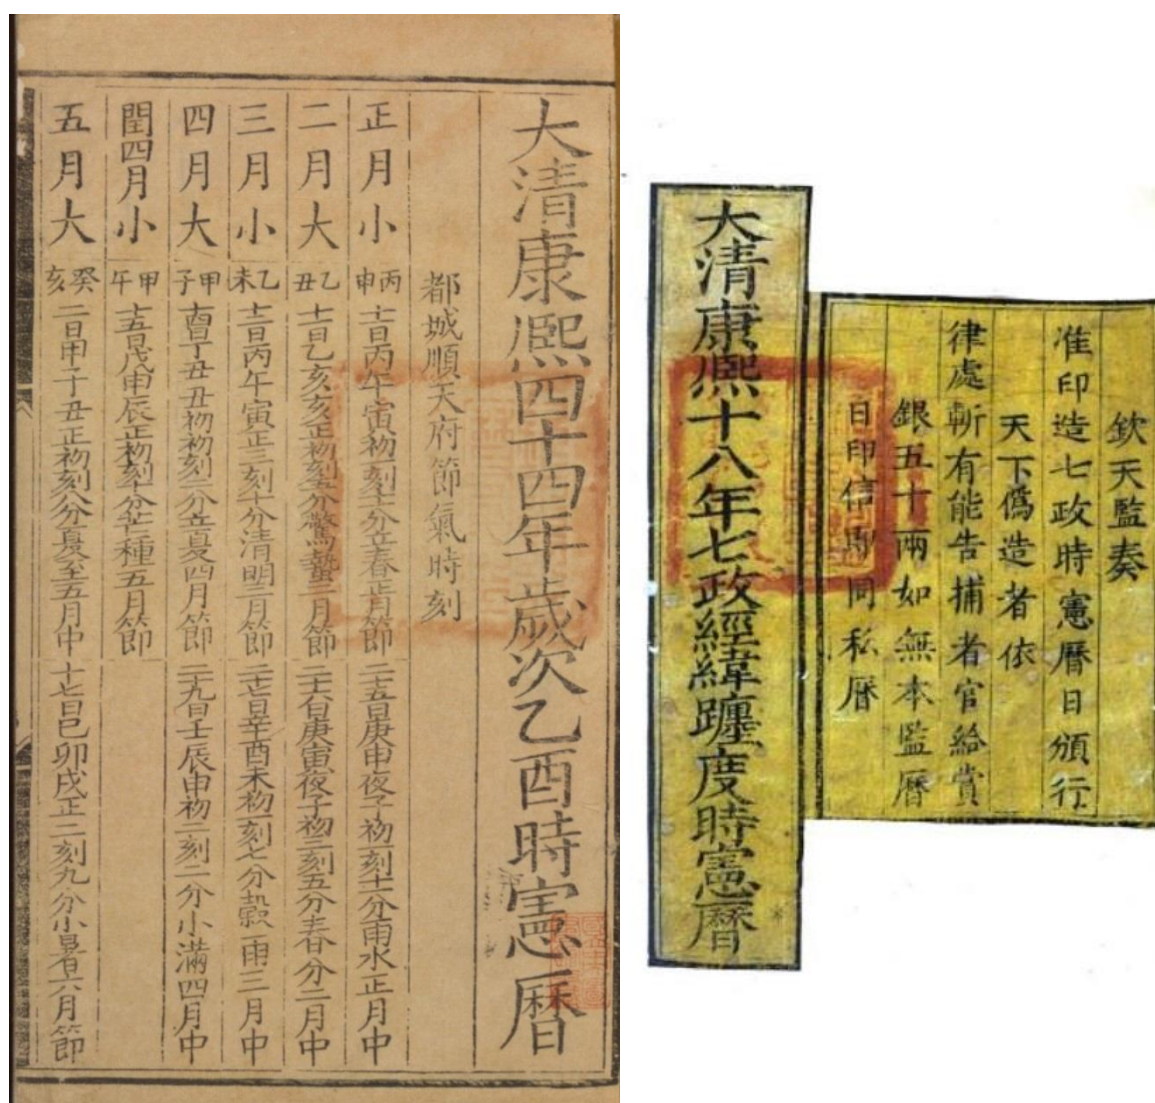 大清康熙四十四年歲次乙酉時憲曆
都城順天府節氣時刻
正月小 丙申 十一日丙午寅初一刻十二分立春正月節 二十五日庚申夜子初一刻十一分雨水正月中
二月大 乙丑 十一日乙亥亥正初刻五分驚蟄二月節 二十六日庚寅夜子初三刻五分春分二月中
三月小 乙未 十二日丙午寅正三刻十分清明三月節 二十七日辛酉未初一刻七分穀雨三月中
四月大 甲子 十四日丁丑丑初初刻二分立夏四月節 二十九日壬辰申初一刻二分小滿四月中
閏四月小 甲午 十五日戊申辰正初刻十分芒種五月節
五月大 癸亥 二日甲子丑正初刻八分夏至五月中 十七日己卯戌正二刻九分小暑六月節
欽天監奏
准印造七政時憲曆日頒行
天下僞造者依
律處斬有能告捕者官給賞
銀五十兩如無本監曆
日印信即同私曆
大清康熙十八年七政經緯躔度時憲曆